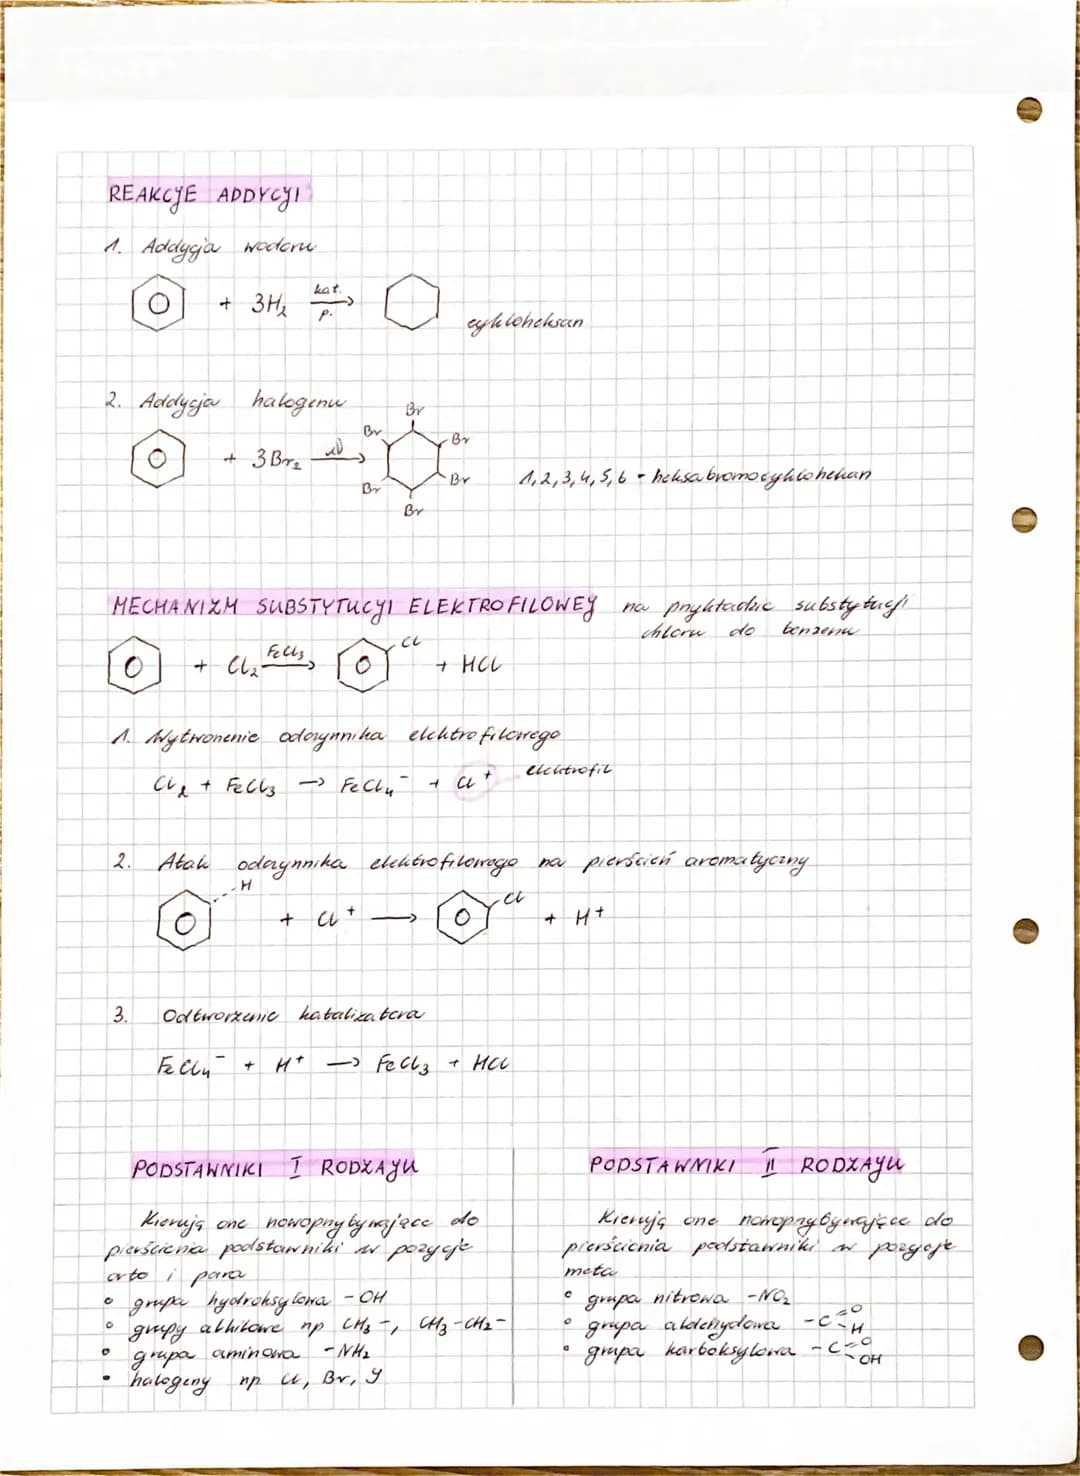 REAKCJE ADDYCJI
1. Addycja wodoru
+ 3H₂ kat. p. →
cykloheksan
2. Addycja halogenu
+ 3Br₂ → Br Br Br Br Br Br
1,2,3,4,5,6 - heksabromocykloheksan
MECHANIZM SUBSTYTUCJI ELEKTROFILOWEJ na przykładzie substytucji
chloru do benzenu
+ Cl₂ FeCl₃ → Cl + HCl
1. Wytworzenie odczynnika elektrofilowego
Cl₂ + FeCl₃ → FeCl₄⁻ + Cl⁺ elektrofil
2. Atak odczynnika elektrofilowego na pierścień aromatyczny
H + Cl⁺ → Cl + H⁺
3. Odtworzenie katalizatora
FeCl₄⁻ + H⁺ → FeCl₃ + HCl
PODSTAWNIKI I RODZAJU
Kierują one nowoprzybywające do
pierścienia podstawniki w pozycje
orto i para
• grupa hydroksylowa - OH
• grupy alkilowe np CH₃-, CH₃-CH₂-
• grupa aminowa - NH₂
• halogeny np Cl, Br, J
PODSTAWNIKI II RODZAJU
Kierują one nowoprzybywające do
pierścienia podstawniki w pozycje
meta
• grupa nitrowa -NO₂
• grupa aldehydowa -C=O H
• grupa karboksylowa -C=O OH